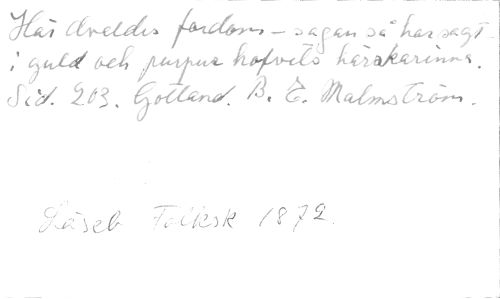 Här dvaldes fordom – sagan så har sagt –
i guld och purpur hafvets härskarinna.
Sid. 203. Gotland. B. E. Malmström.
Läseb Folksk 1872.